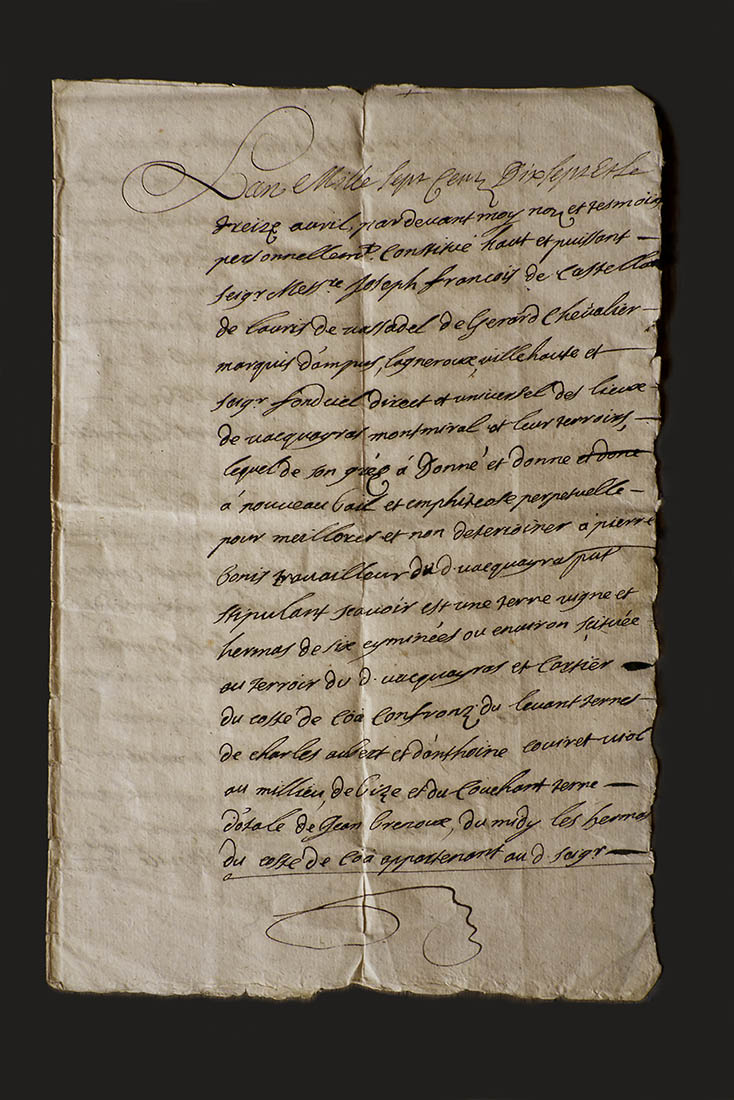 Lan Mille sept Cens Dix sept et le
treize avril, par devant moy no.re et tesmoins
personnellem.t Constitué haut et puissant
seig.r Mess.re Joseph francois de Castella
de lauris de vassadel de Gerard Chevalier
marquis d'ampus, lagneroux villehaute et
seig.r fonduel direct et universel des lieux
de vacquayras montmiral et leur terroirs,
lequel de son grés á Donné et donne et done
á nouveau bail et emphiteose perpetuelle
pour meillorer et non deterioiner a pierre
bonis travailleur du d. vacquayras pnt
stipulant scavoir est une terre vigne et
hermas de six eyminées ou environ scituée
au terroir du d. vacquayras et Cartier
du costé de Coa Confronz du levant terres
de charles aubert et d'anthoine couiret viol
au millieu, de bize et du Couchant terre
dotale de Jean brezoux, du midy les hermas
du costé de Coa appartenant au d. seig.r